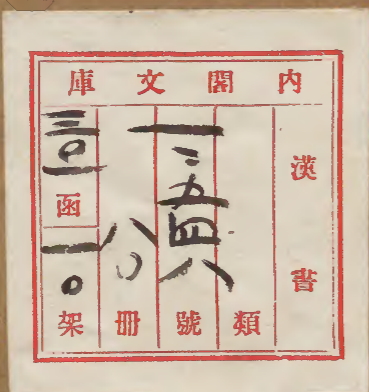 内閣文庫
漢書
類
一二五四八號
八〇冊
三〇一函
一〇架